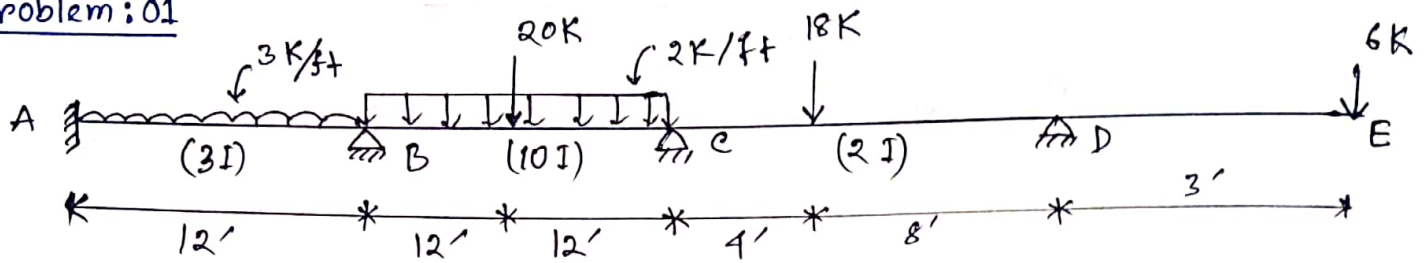 roblem : 01
3 K/ft
20K
2K/ft
18K
6K
A
(3I)
B
(10 I)
C
(2 I)
D
E
12′
12′
12′
4′
8′
3′